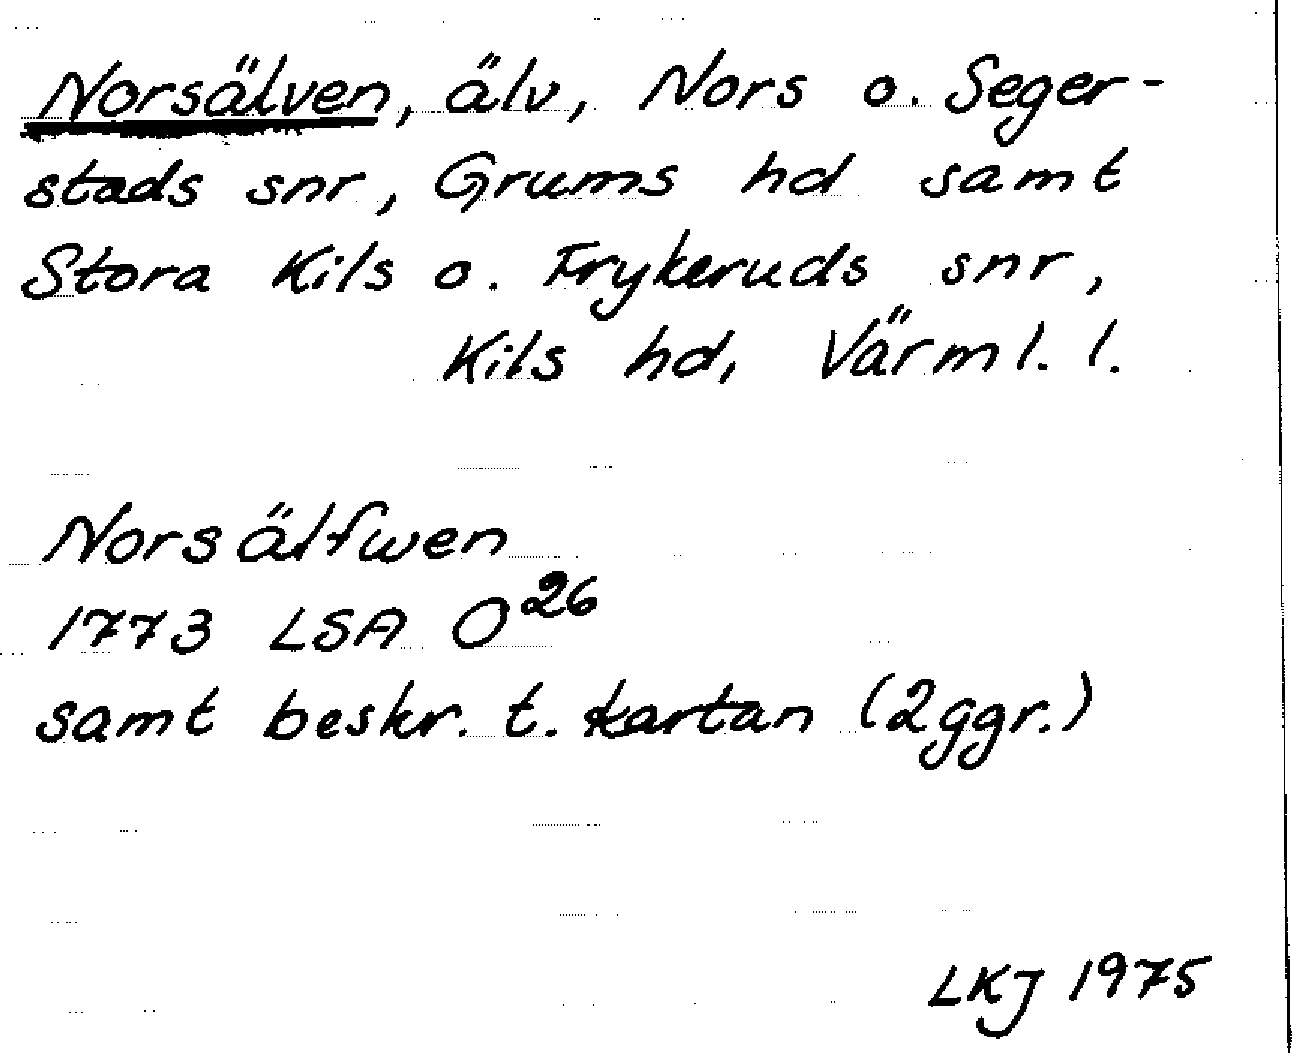 Norsälven, älv, Nors o. Seger-
stads snr, Grums hd samt
Stora Kils o. Frykeruds snr,
Kils hd, Värml. l.
Norsälfwen
1773 LSA O²⁶
samt beskr. t. kartan (2ggr.)
LKJ 1975